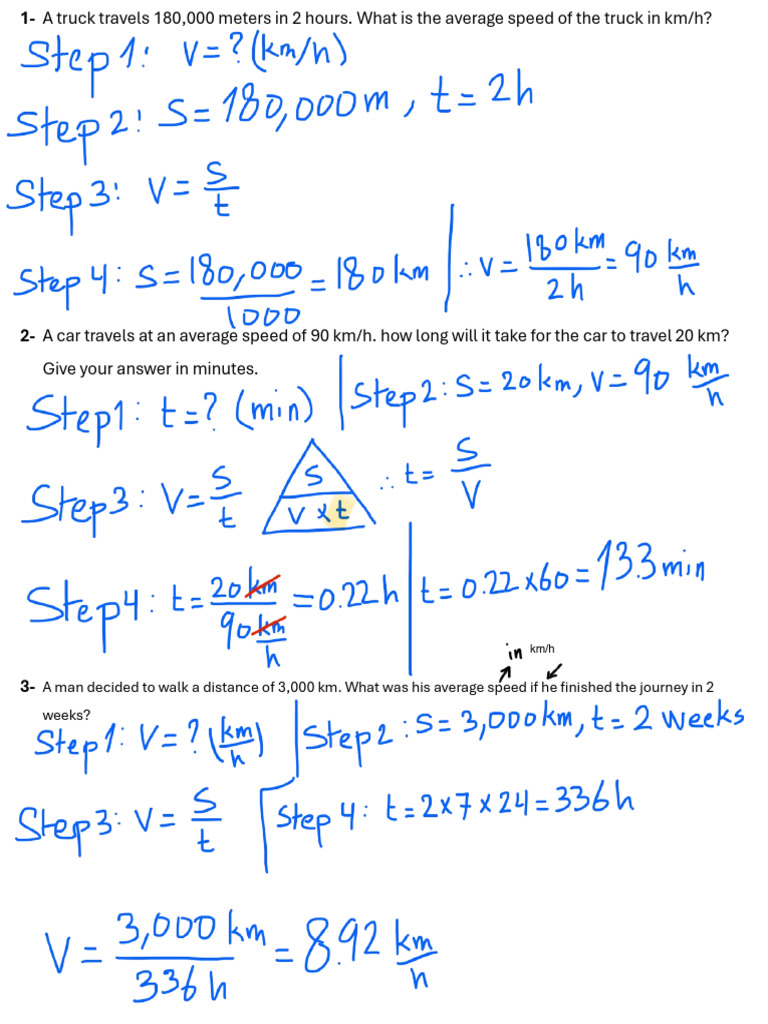 1- A truck travels 180,000 meters in 2 hours. What is the average speed of the truck in km/h?
Step 1: V = ? (km/h)
Step 2: S = 180,000 m, t = 2h
Step 3: V = S/t
Step 4: S = 180,000/1000 = 180 km | ∴ V = 180 km/2h = 90 km/h
2- A car travels at an average speed of 90 km/h. how long will it take for the car to travel 20 km?
Give your answer in minutes.
Step 1: t = ? (min) | Step 2: S = 20 km, V = 90 km/h
Step 3: V = S/t S V x t ∴ t = S/V
Step 4: t = 20 km/90 km/h = 0.22 h | t = 0.22 x 60 = 13.3 min
in km/h
3- A man decided to walk a distance of 3,000 km. What was his average speed if he finished the journey in 2
weeks?
Step 1: V = ? (km/h) | Step 2: S = 3,000 km, t = 2 weeks
Step 3: V = S/t | Step 4: t = 2 x 7 x 24 = 336 h
V = 3,000 km/336 h = 8.92 km/h